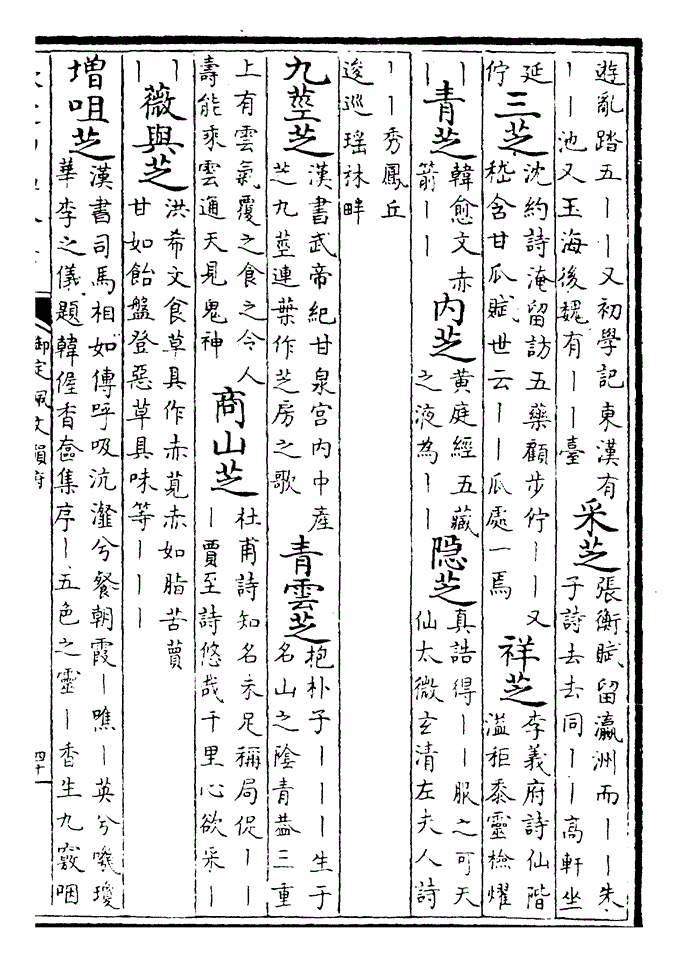 遊亂踏五丨丨又初學記東漢有
丨丨池又玉海後魏有丨丨臺
采芝
張衡賦留瀛洲而丨丨朱
子詩去去同丨丨高軒坐
延
佇
三芝
沈約詩淹留訪五藥顧步佇丨丨又
嵇含甘瓜賦世云丨丨瓜處一焉
祥芝
李義府詩仙階
溢秬黍靈檢燿
丨
丨
青芝
韓愈文赤
箭丨丨
内芝
黄庭經五藏
之液為丨丨
隐芝
真誥得丨丨服之可天
仙太微玄清左夫人詩
丨丨秀鳳丘
逡巡瑶林畔
九莖芝
漢書武帝紀甘泉宫内中産
芝九莖連葉作芝房之歌
青雲芝
抱朴子丨丨丨生于
名山之陰青葢三重
上有雲氣覆之食之令人
壽能乘雲通天見鬼神
商山芝
杜甫詩知名未足稱局促丨丨
丨賈至詩悠哉千里心欲采丨
丨
丨
薇與芝
洪希文食草具作赤莧赤如脂苦蕒
甘如飴盤登惡草具味等丨丨丨
増咀芝
漢書司馬相如傳呼吸沆瀣兮餐朝霞丨噍丨英兮嘰瓊
華李之儀題韓偓香奩集序丨五色之靈丨香生九竅咽
御定佩文韻府
四十一